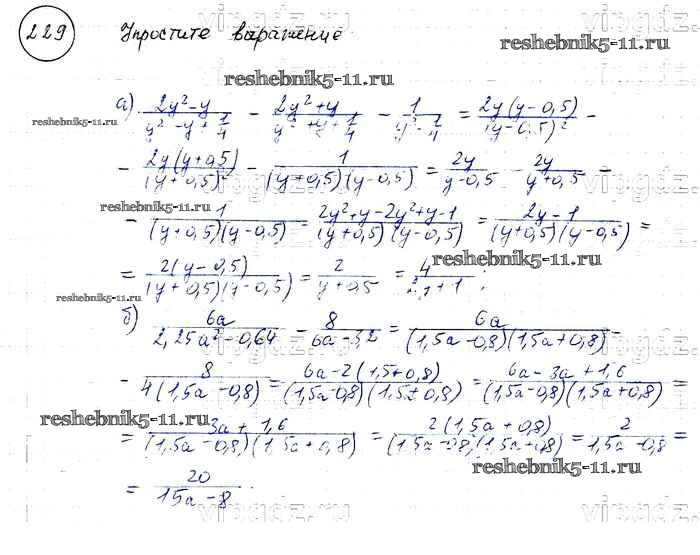 229 Упростите выражение
reshebnik5-11.ru
reshebnik5-11.ru
а) (2y² - y)/(y² - y + 1/4) - (2y² + y)/(y² + y + 1/4) - 1/(y² - 1/4) = 2y(y-0,5)/(y-0,5)² -
reshebnik5-11.ru
- 2y(y+0,5)/(y+0,5)² - 1/((y+0,5)(y-0,5)) = 2y/(y-0,5) - 2y/(y+0,5) -
reshebnik5-11.ru
- 1/((y+0,5)(y-0,5)) = (2y²+y-2y²+y-1)/((y+0,5)(y-0,5)) = (2y-1)/((y+0,5)(y-0,5)) =
reshebnik5-11.ru
= 2(y-0,5)/((y+0,5)(y-0,5)) = 2/(y+0,5) = 4/(2y+1);
reshebnik5-11.ru
б) 6a/(2,25a² - 0,64) - 8/(6a-3,2) = 6a/((1,5a-0,8)(1,5a+0,8)) -
- 8/(4(1,5a-0,8)) = (6a-2(1,5+0,8))/((1,5a-0,8)(1,5+0,8)) = (6a-3a+1,6)/((1,5a-0,8)(1,5a+0,8)) =
reshebnik5-11.ru
= (3a+1,6)/((1,5a-0,8)(1,5a+0,8)) = 2(1,5a+0,8)/((1,5a-0,8)(1,5a+0,8)) = 2/(1,5a-0,8) =
reshebnik5-11.ru
= 20/(15a-8)
reshebnik5-11.ru